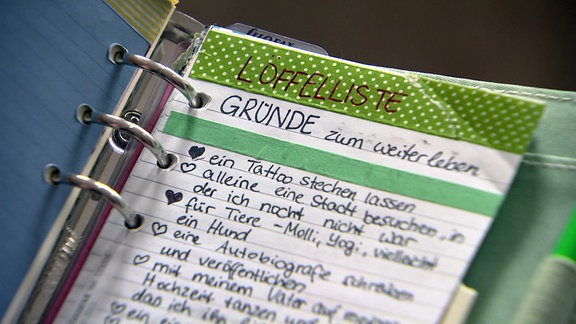 LÖFFELLISTE
GRÜNDE zum weiterleben
ein Tattoo stechen lassen
alleine eine Stadt besuchen, in
der ich nocht nicht war
für Tiere - Molli, Yogi, vielleicht
ein Hund
eine Autobiografie schreiben
und veröffentlichen
mit meinem Vater auf meiner
Hochzeit tanzen und
das ich ihn
ein